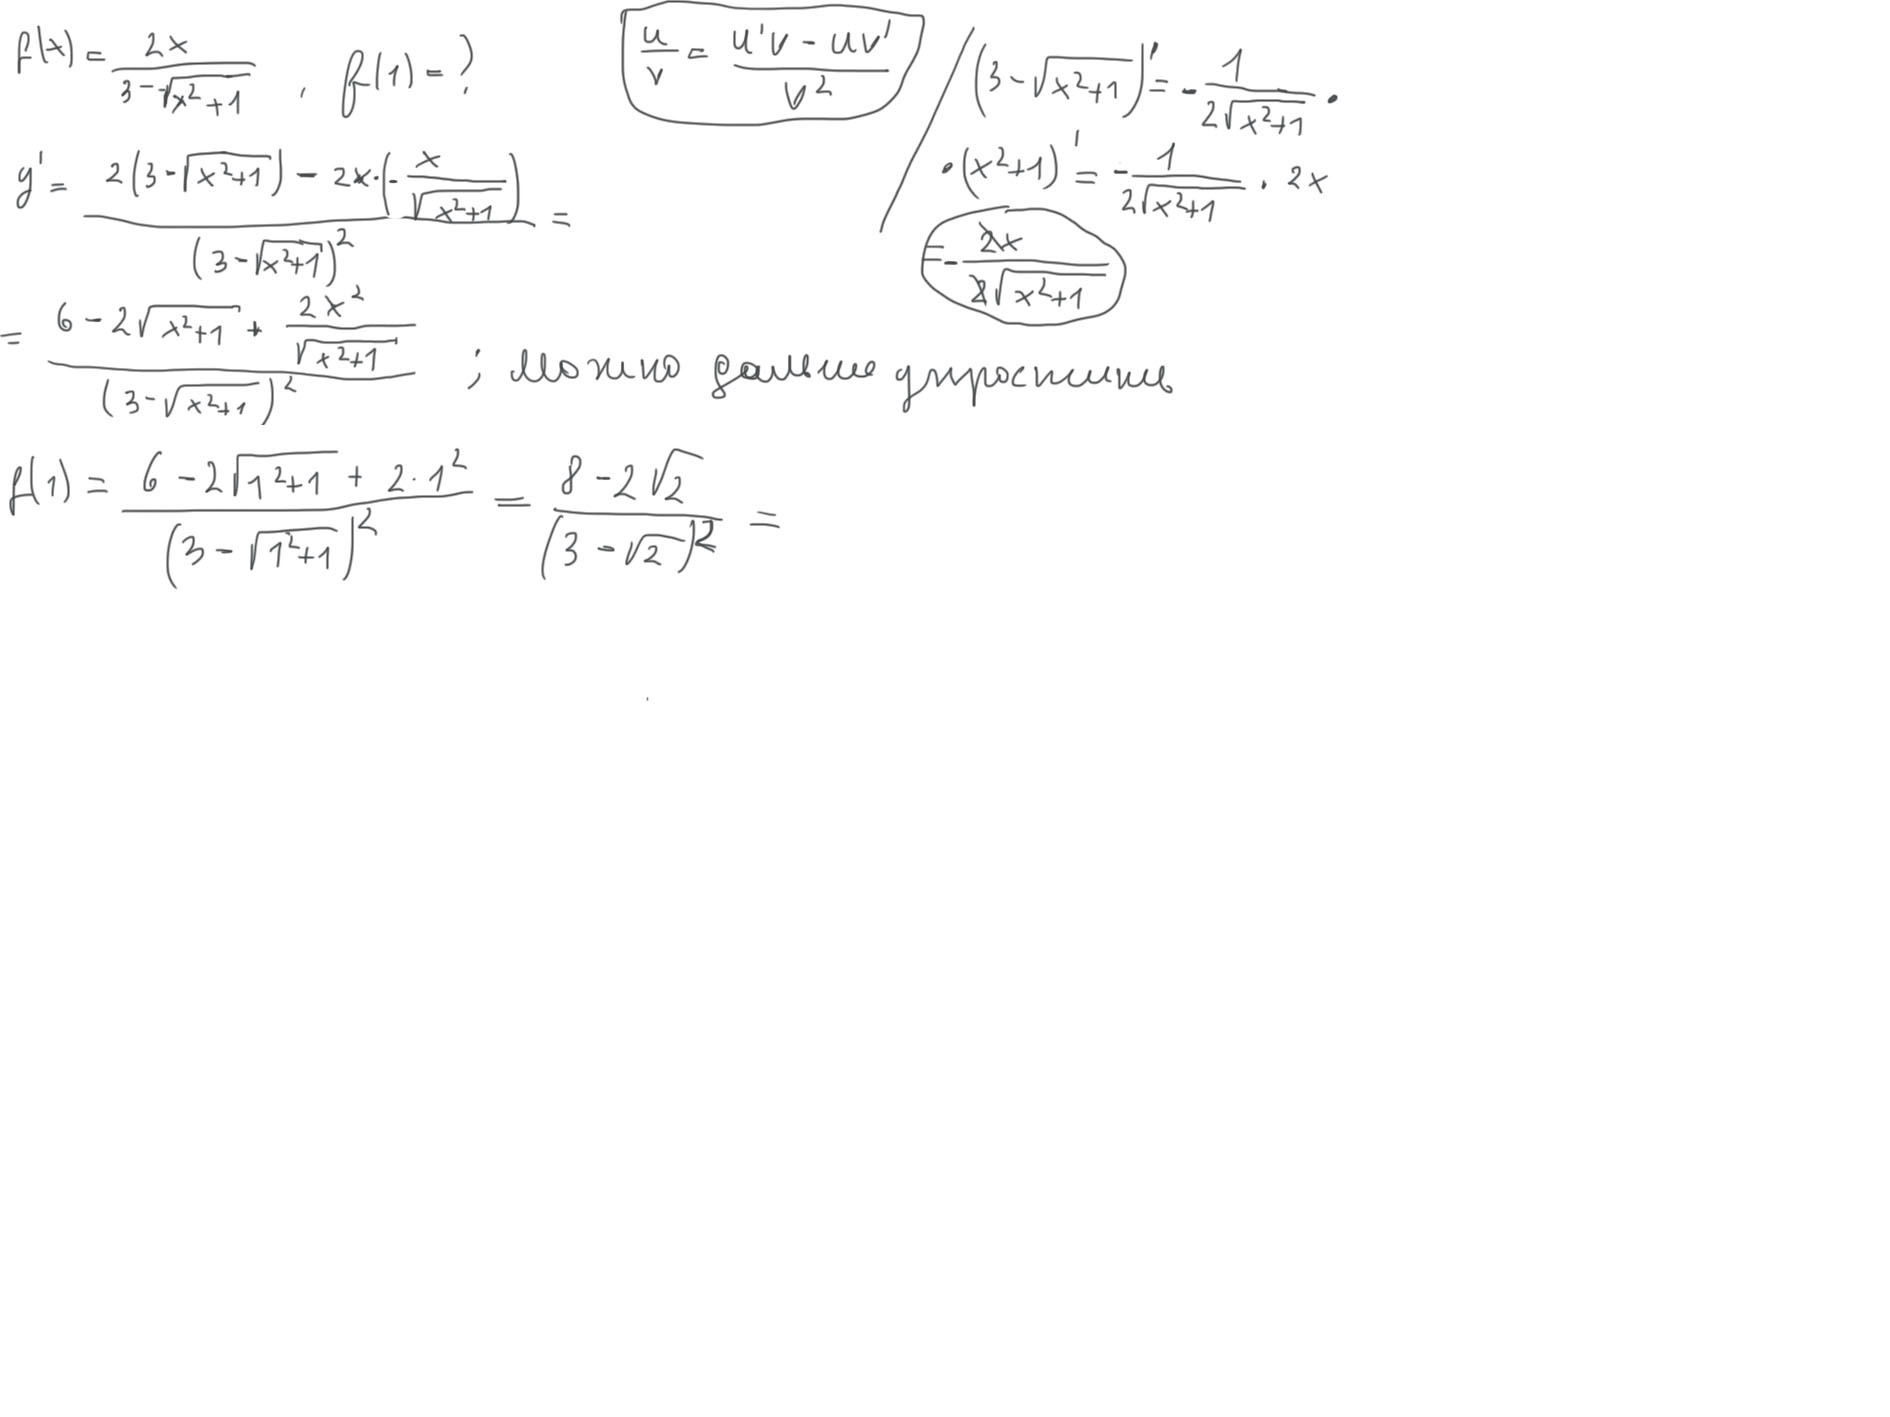 f(x) = 2x / (3 - √(x²+1)) , f(1) = ?
u/v = (u'v - uv') / v²
(3 - √(x²+1))' = - 1 / (2√(x²+1)) ·
· (x²+1)' = - 1 / (2√(x²+1)) · 2x
= - 2x / (2√(x²+1))
y' = (2(3 - √(x²+1)) - 2x · (- x / √(x²+1))) / (3 - √(x²+1))² =
= (6 - 2√(x²+1) + 2x² / √(x²+1)) / (3 - √(x²+1))² ; можно дальше упростить
f(1) = (6 - 2√(1²+1) + 2 · 1²) / (3 - √(1²+1))² = (8 - 2√2) / (3 - √2)² =